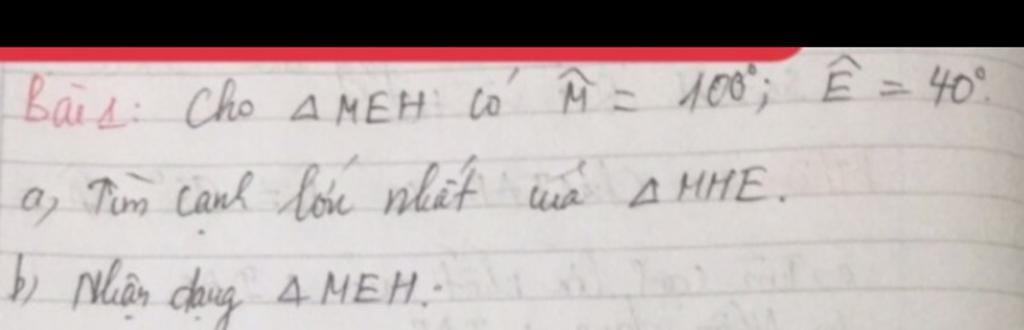 Bài 1: Cho △MEH có M̂ = 100°; Ê = 40°.
a, Tìm cạnh lớn nhất của △MHE.
b) Nhận dạng △MEH.